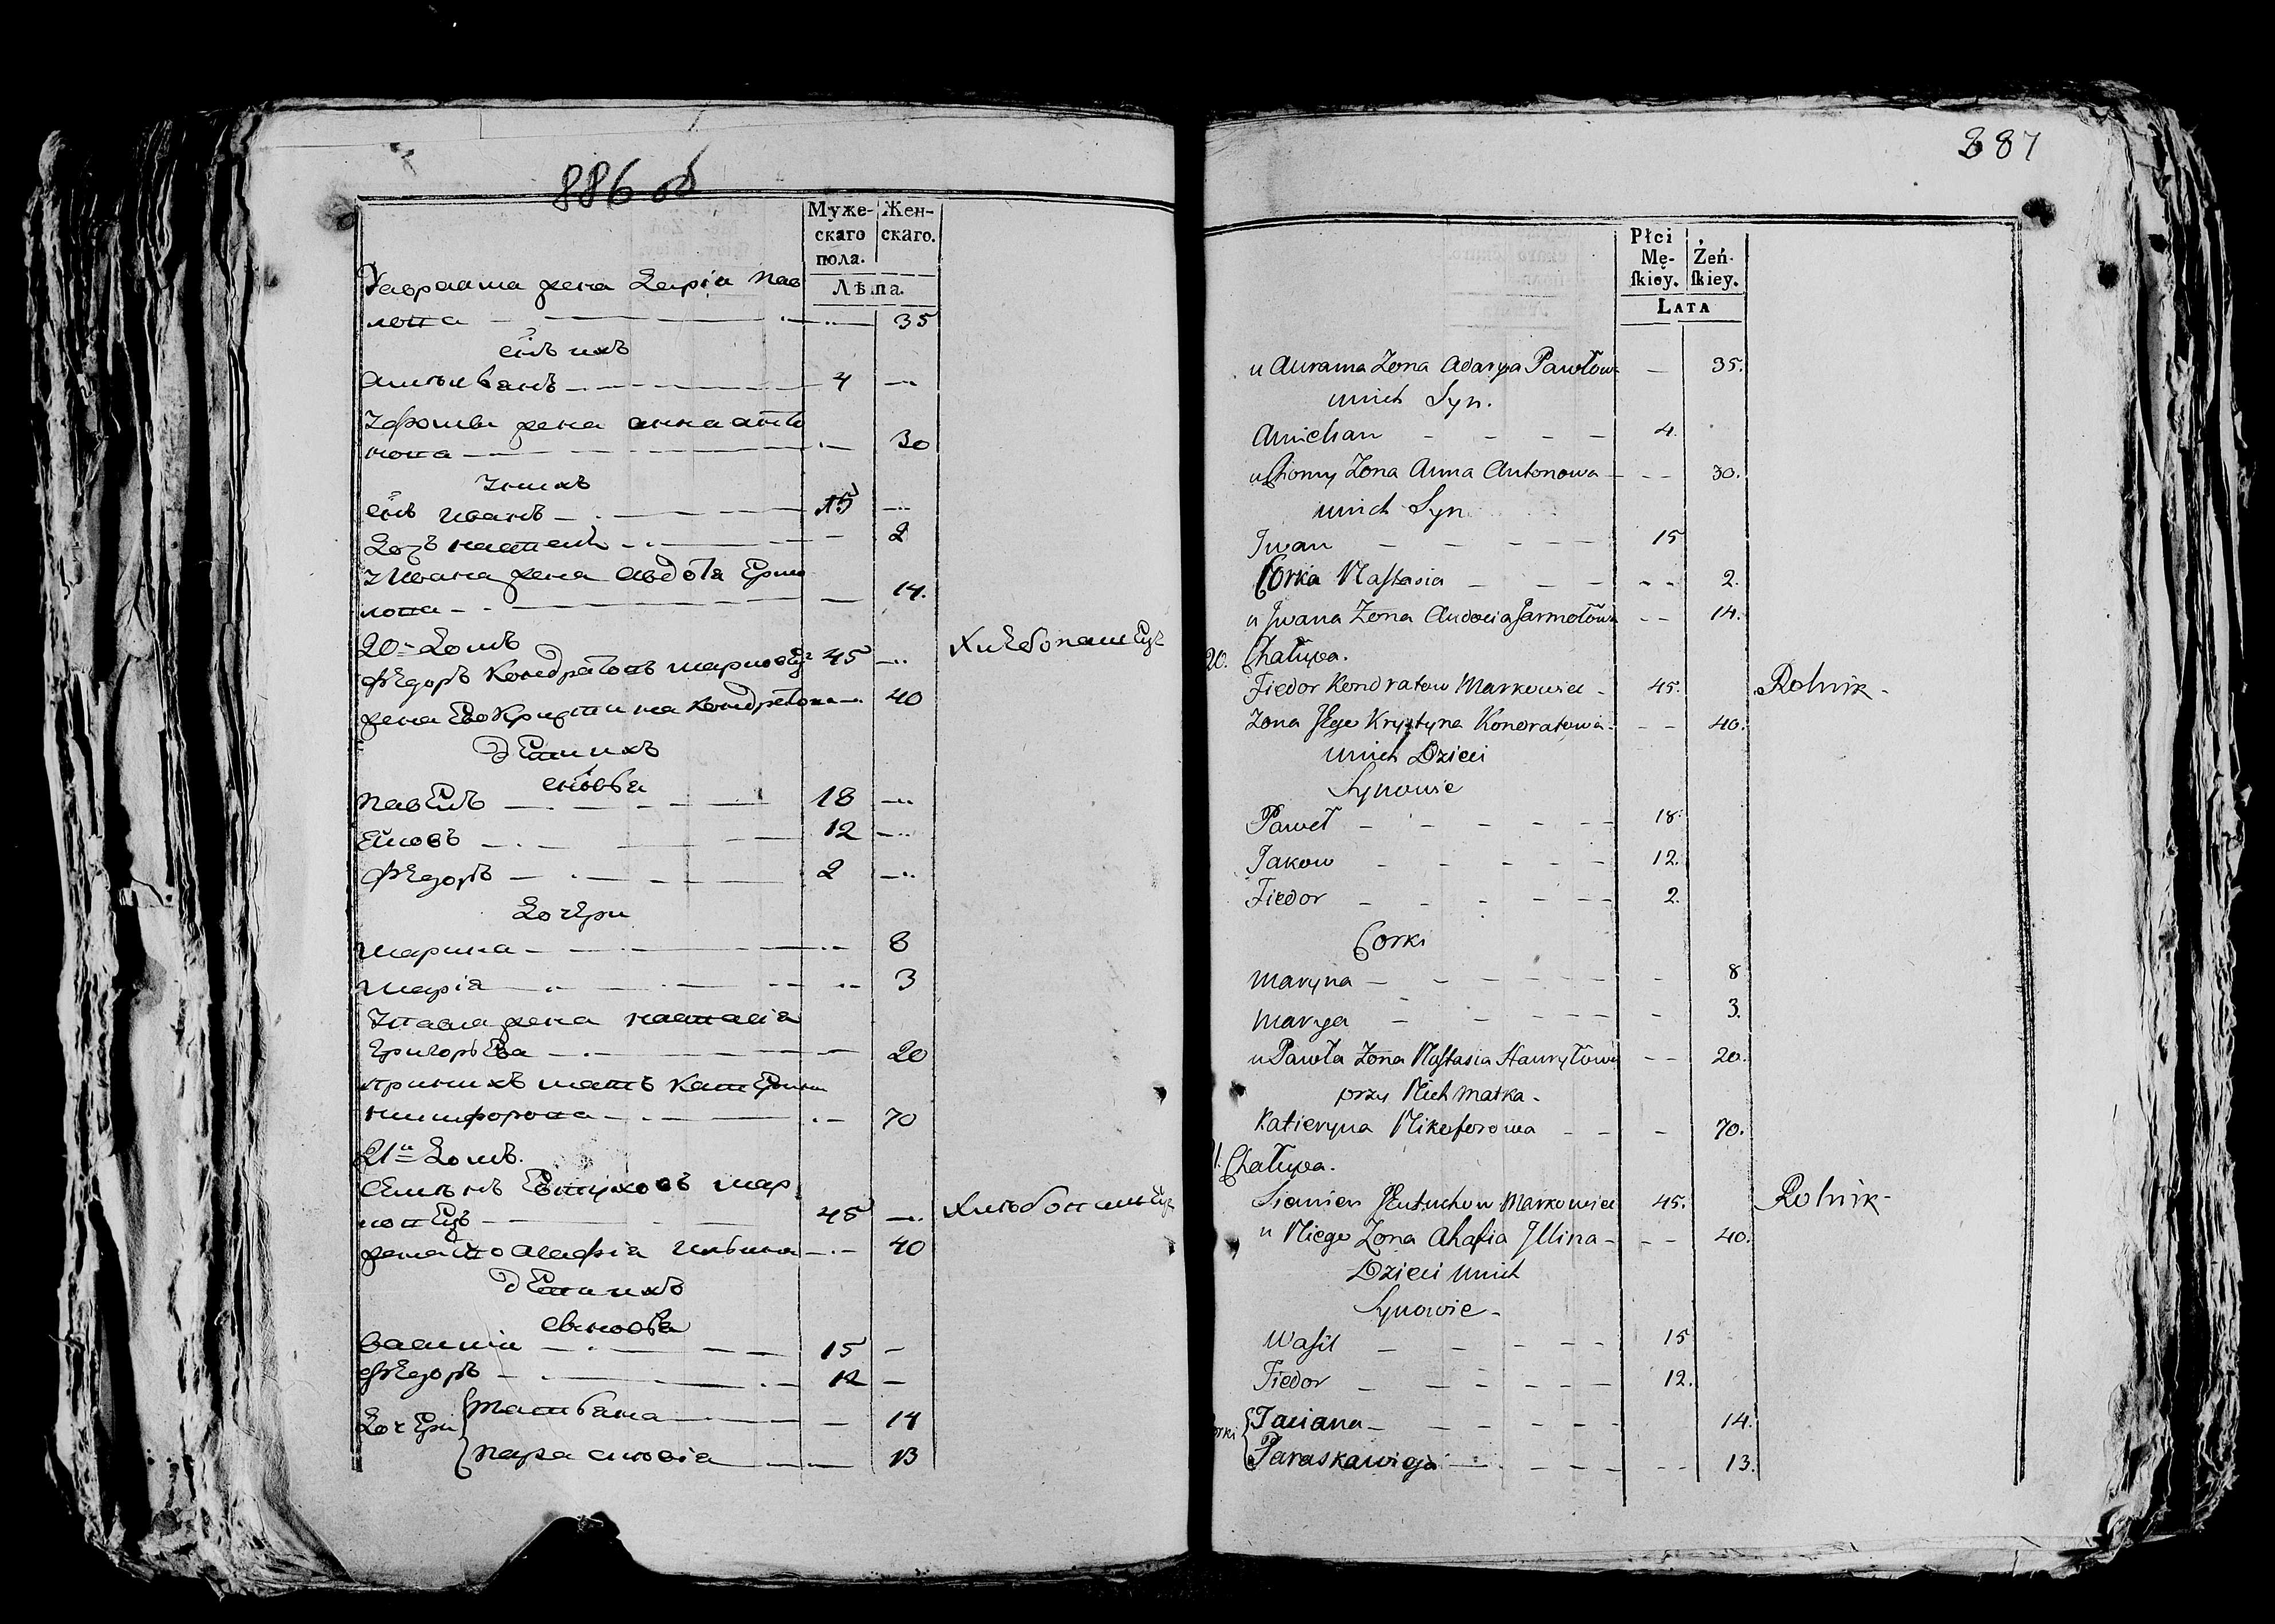 886 об
Муже- Жен-
скаго скаго.
пола.
Лѣта.
жена Дарiя Пав
лова 35
снъ ихъ
4
жена анна анто
нова 30
унихъ
снъ иванъ 15
2
уивана жена авдотя Ермо
лова 14.
20й Домъ
Ѳедоръ Кондратовъ марковец 45 Хлебопашец
жена Его Кристина кондратова 40
дети ихъ
сновья
павелъ 18
12
Ѳедоръ 2
Дочери
марина 8
марiя 3
упавла жена настасiя
григорьева 20
приних мать катерина
никифорова 70
21й Домъ.
Семенъ Евтуховъ мар
ковец 45 Хлебопашец
жена его агафiя ильина 40
дети ихъ
сыновья
василiй 15
Ѳедоръ 12
Дочери татьяна 14
парасковiя 13
887
Płci Żeń-
Mę- skiey.
skiey.
Lata
u Aurama Zona Adarya Pawłowa — 35.
unich Syn.
4.
u Chomy Zona Anna Antonowa — 30.
unich Syn
Jwan 15
Corka Nastasia 2.
u Jwana Zona Audocia Jarmołowa 14.
20. Chałupa.
Fiedor Kondratow Markowiec 45. Rolnik
Zona Jego Krystyna Kondratowa 40.
unich Dzieci
Synowie
Paweł 18.
Jakow 12.
Fiedor 2.
Corki
Maryna 8
Marya 3.
u Pawła Zona Nastasia Hauryłowa 20.
przy Nich Matka
Katieryna Nikoforowa 70.
1. Chałupa.
Siemien Jeutuchow Markowiec 45. Rolnik
u Niego Zona Ahafia Jllina 40.
Dzieci unich
Synowie
Wasil 15
Fiedor 12.
orki Taciana 14.
Paraskawieja 13.